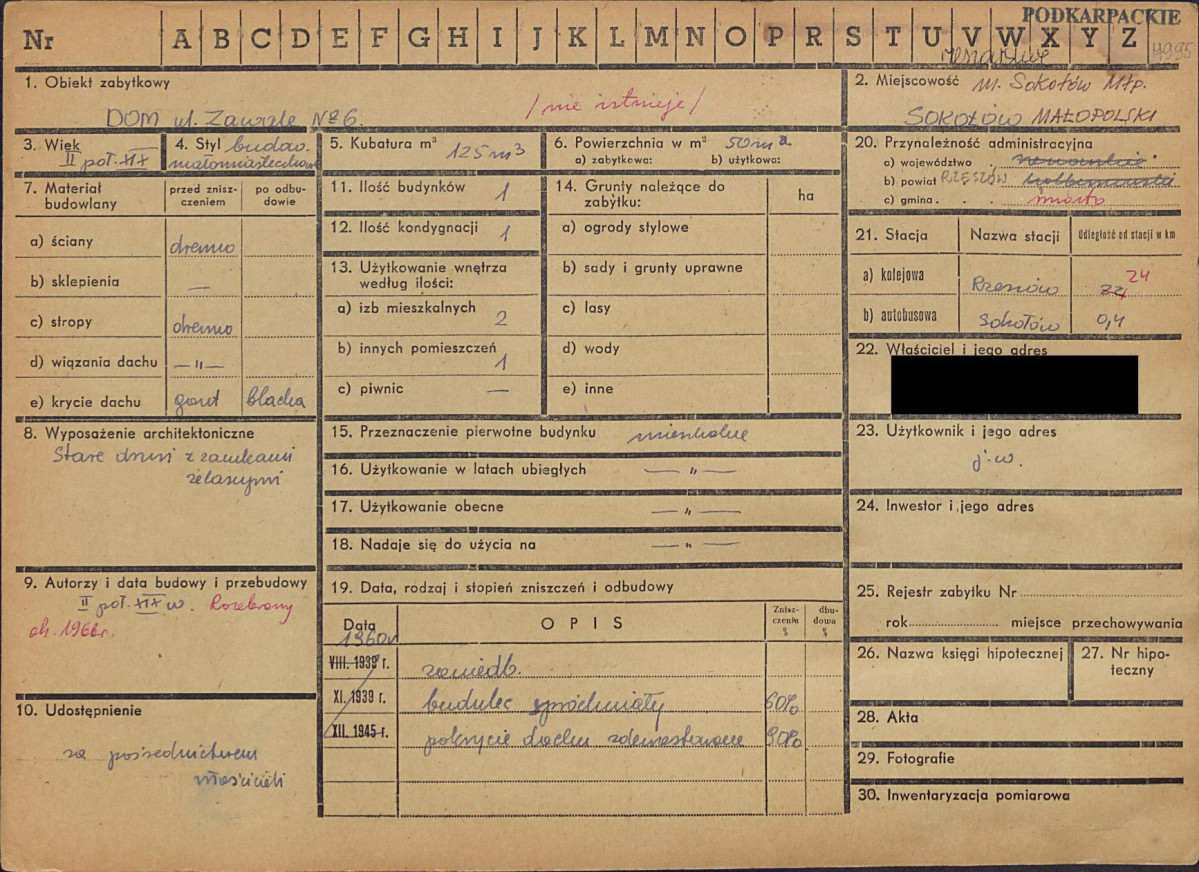 PODKARPACKIE
Nr A B C D E F G H I J K L M N O P R S T U V W X Y Z
4995
1. Obiekt zabytkowy
DOM ul. Zawale № 6.
/nie istnieje/
2. Miejscowość m. Sokołów Młp.
SOKOŁÓW MAŁOPOLSKI
3. Wiek
II poł. XIX
4. Styl budow.
małomiasteczkow
5. Kubatura m³
125 m³
6. Powierzchnia w m²
50 m²
a) zabytkowa: b) użytkowa:
7. Materiał budowlany
przed znisz-
czeniem
po odbu-
dowie
a) ściany drewno
b) sklepienia —
c) stropy drewno
d) wiązania dachu —„—
e) krycie dachu gont blacha
8. Wyposażenie architektoniczne
Stare drzwi z zamkami
żelaznymi
9. Autorzy i data budowy i przebudowy
II poł. XIX w. Rozebrany
ok. 1968r.
10. Udostępnienie
za pośrednictwem
właścicieli
11. Ilość budynków 1
12. Ilość kondygnacji 1
13. Użytkowanie wnętrza
według ilości:
a) izb mieszkalnych 2
b) innych pomieszczeń 1
c) piwnic —
14. Grunty należące do
zabytku:
ha
a) ogrody stylowe
b) sady i grunty uprawne
c) lasy
d) wody
e) inne
15. Przeznaczenie pierwotne budynku mieszkalne
16. Użytkowanie w latach ubiegłych —„—
17. Użytkowanie obecne —„—
18. Nadaje się do użycia na —„—
19. Data, rodzaj i stopień zniszczeń i odbudowy
Data OPIS
Znisz-
czenia
%
dbu-
dowa
%
1960r
VIII. 1939 r. zaniedb.
XI. 1939 r. budulec spróchniały 60%
XII. 1945 r. pokrycie dachu zdewastowane 90%
20. Przynależność administracyjna
a) województwo
b) powiat RZESZÓW kolbuszowski
c) gmina miasto
21. Stacja Nazwa stacji Odległość od stacji w km
a) kolejowa Rzeszów 24
b) autobusowa Sokołów 0,4
22. Właściciel i jego adres
23. Użytkownik i jego adres
j.w.
24. Inwestor i jego adres
25. Rejestr zabytku Nr
rok miejsce przechowywania
26. Nazwa księgi hipotecznej
27. Nr hipo-
teczny
28. Akta
29. Fotografie
30. Inwentaryzacja pomiarowa